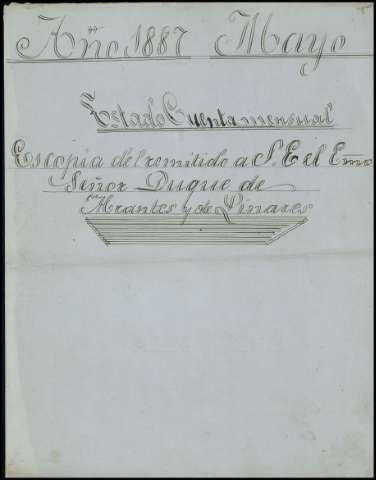 Año 1887 Mayo
Estado Cuenta mensual
Es copia del remitido a S. E el Emo
Señor Duque de
Abrantes y de Linares